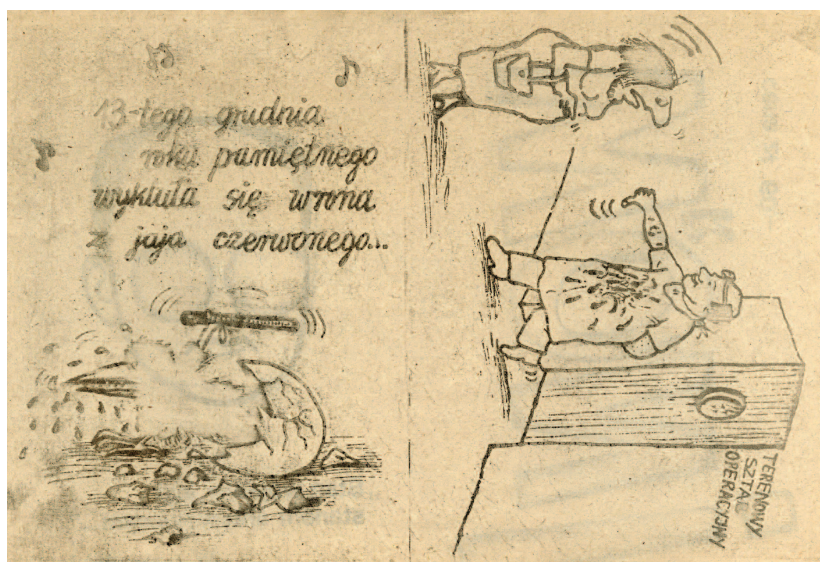 13-tego grudnia
roku pamiętnego
wykluła się wrona
z jaja czerwonego...
TERENOWY
SZTAB
OPERACYJNY